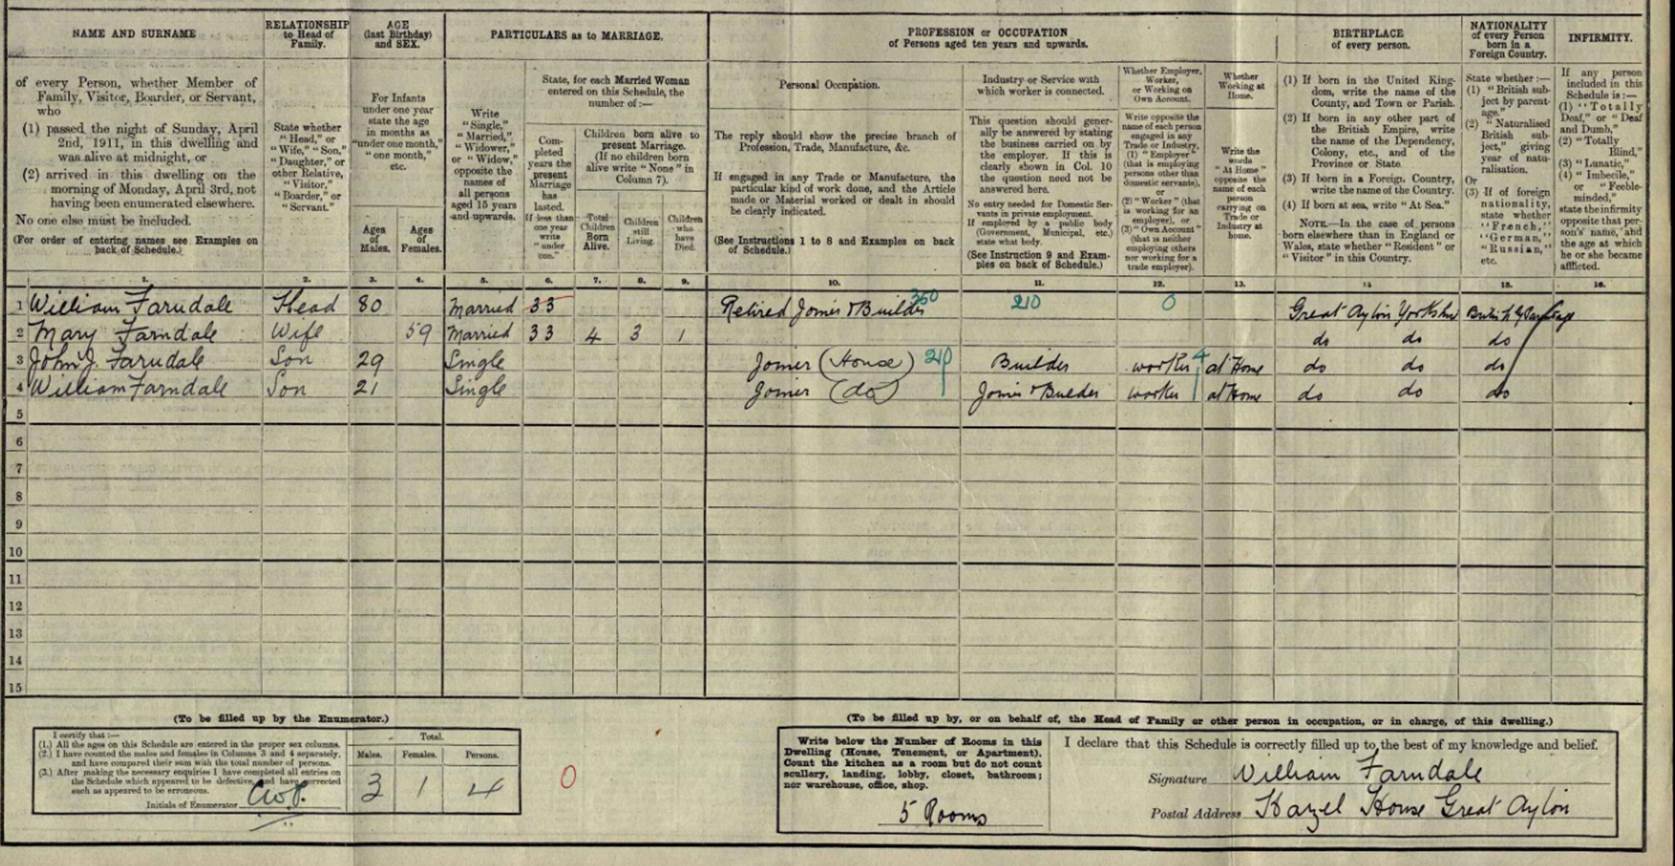 NAME AND SURNAME
RELATIONSHIP
to Head of
Family.
AGE
(last Birthday)
and SEX.
PARTICULARS as to MARRIAGE.
PROFESSION or OCCUPATION
of Persons aged ten years and upwards.
BIRTHPLACE
of every person.
NATIONALITY
of every Person
born in a
Foreign Country.
INFIRMITY.
of every Person, whether Member of
Family, Visitor, Boarder, or Servant,
who
(1) passed the night of Sunday, April
2nd, 1911, in this dwelling and
was alive at midnight, or
(2) arrived in this dwelling on the
morning of Monday, April 3rd, not
having been enumerated elsewhere.
No one else must be included.
(For order of entering names see Examples on
back of Schedule.)
State whether
"Head," or
"Wife," "Son,"
"Daughter," or
other Relative,
"Visitor,"
"Boarder," or
"Servant."
For Infants
under one year
state the age
in months as
"under one month,"
"one month,"
etc.
Ages
of
Males.
Ages
of
Females.
Write
"Single,"
"Married,"
"Widower,"
or "Widow,"
opposite the
names of
all persons
aged 15 years
and upwards.
State, for each Married Woman
entered on this Schedule, the
number of:—
Com-
pleted
years the
present
Marriage
has
lasted.
If less than
one year
write
"under
one."
Children born alive to
present Marriage.
(If no children born
alive write "None" in
Column 7).
Total
Children
Born
Alive.
Children
still
Living.
Children
who
have
Died.
Personal Occupation.
The reply should show the precise branch of
Profession, Trade, Manufacture, &c.
If engaged in any Trade or Manufacture, the
particular kind of work done, and the Article
made or Material worked or dealt in should
be clearly indicated.
(See Instructions 1 to 8 and Examples on back
of Schedule.)
Industry or Service with
which worker is connected.
This question should gener-
ally be answered by stating
the business carried on by
the employer. If this is
clearly shown in Col. 10
the question need not be
answered here.
No entry needed for Domestic Ser-
vants in private employment.
If employed by a public body
(Government, Municipal, etc.)
state what body.
(See Instruction 9 and Exam-
ples on back of Schedule.)
Whether Employer,
Worker,
or Working on
Own Account.
Write opposite the
name of each person
engaged in any
Trade or Industry,
(1) "Employer"
(that is employing
persons other than
domestic servants),
or
(2) "Worker" (that
is working for an
employer), or
(3) "Own Account"
(that is neither
employing others
nor working for a
trade employer).
Whether
Working at
Home.
Write the
words
"At Home"
opposite the
name of each
person
carrying on
Trade or
Industry at
home.
(1) If born in the United King-
dom, write the name of the
County, and Town or Parish.
(2) If born in any other part of
the British Empire, write
the name of the Dependency,
Colony, etc., and of the
Province or State.
(3) If born in a Foreign Country,
write the name of the Country.
(4) If born at sea, write "At Sea."
NOTE.—In the case of persons
born elsewhere than in England or
Wales, state whether "Resident" or
"Visitor" in this Country.
State whether:—
(1) "British sub-
ject by parent-
age,"
(2) "Naturalised
British sub-
ject," giving
year of natu-
ralisation.
Or
(3) If of foreign
nationality,
state whether
"French,"
"German,"
"Russian,"
etc.
If any person
included in this
Schedule is:—
(1) "Totally
Deaf," or "Deaf
and Dumb,"
(2) "Totally
Blind,"
(3) "Lunatic,"
(4) "Imbecile,"
or "Feeble-
minded,"
state the infirmity
opposite that per-
son's name, and
the age at which
he or she became
afflicted.
1. 2. 3. 4. 5. 6. 7. 8. 9. 10. 11. 12. 13. 14. 15. 16.
1 William Farndale Head 80 Married 33 Retired Joiner & Builder 350 210 0 Great Ayton Yorkshire British by Parentage
2 Mary Farndale Wife 59 Married 33 4 3 1 do do do
3 John J. Farndale Son 29 Single Joiner (House) 210 Builder worker 4 at Home do do do
4 William Farndale Son 21 Single Joiner (do) Joiner & Builder worker at Home do do do
5
6
7
8
9
10
11
12
13
14
15
(To be filled up by the Enumerator.)
I certify that:—
(1.) All the ages on this Schedule are entered in the proper sex columns.
(2.) I have counted the males and females in Columns 3 and 4 separately,
and have compared their sum with the total number of persons.
(3.) After making the necessary enquiries I have completed all entries on
the Schedule which appeared to be defective, and have corrected
such as appeared to be erroneous.
Initials of Enumerator
Total.
Males. Females. Persons.
3 1 4
0
(To be filled up by, or on behalf of, the Head of Family or other person in occupation, or in charge, of this dwelling.)
Write below the Number of Rooms in this
Dwelling (House, Tenement, or Apartment).
Count the kitchen as a room but do not count
scullery, landing, lobby, closet, bathroom;
nor warehouse, office, shop.
5 Rooms
I declare that this Schedule is correctly filled up to the best of my knowledge and belief.
Signature William Farndale
Postal Address Hazel House Great Ayton